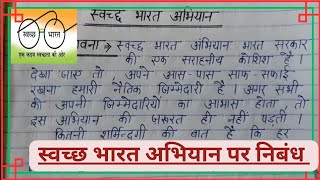 स्वच्छ भारत अभियान
स्वच्छ भारत
एक कदम स्वच्छता की ओर
वना → स्वच्छ भारत अभियान भारत सरकार
की एक सराहनीय कोशिश है।
देखा जाए तो, अपने आस-पास साफ-सफाई
रखना हमारी नैतिक जिम्मेदारी है। अगर सभी
को अपनी जिम्मेदारियों का आभास होता तो
इस अभियान की जरूरत ही नहीं पड़ती।
कितनी शर्मिन्दगी की बात है कि हर
स्वच्छ भारत अभियान पर निबंध